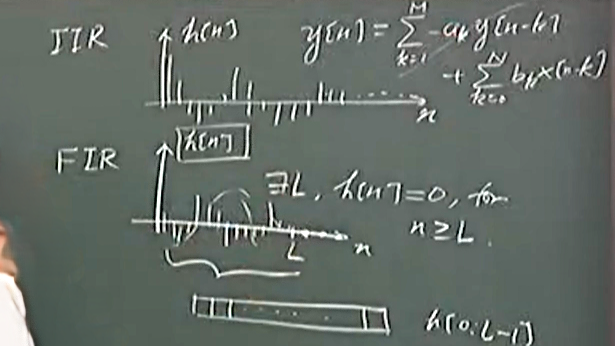 IIR h[n] y[n] = \sum_{k=1}^{M} -a_k y[n-k]
+ \sum_{k=0}^{N} b_k x[n-k]
n
FIR h[n]
∃L, h[n]=0, for
n ≥ L.
L n
h[0:L-1]